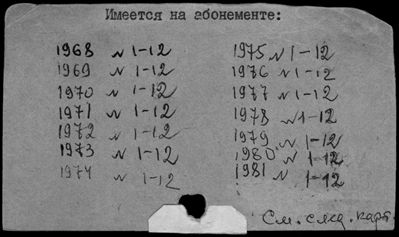 Имеется на абонементе:
1968 N 1-12
1969 N 1-12
1970 N 1-12
1971 N 1-12
1972 N 1-12
1973 N 1-12
1974 N 1-12
1975 N 1-12
1976 N 1-12
1977 N 1-12
1978 N 1-12
1979 N 1-12
1980 N 1-12
1981 N 1-12
См. след. карт.